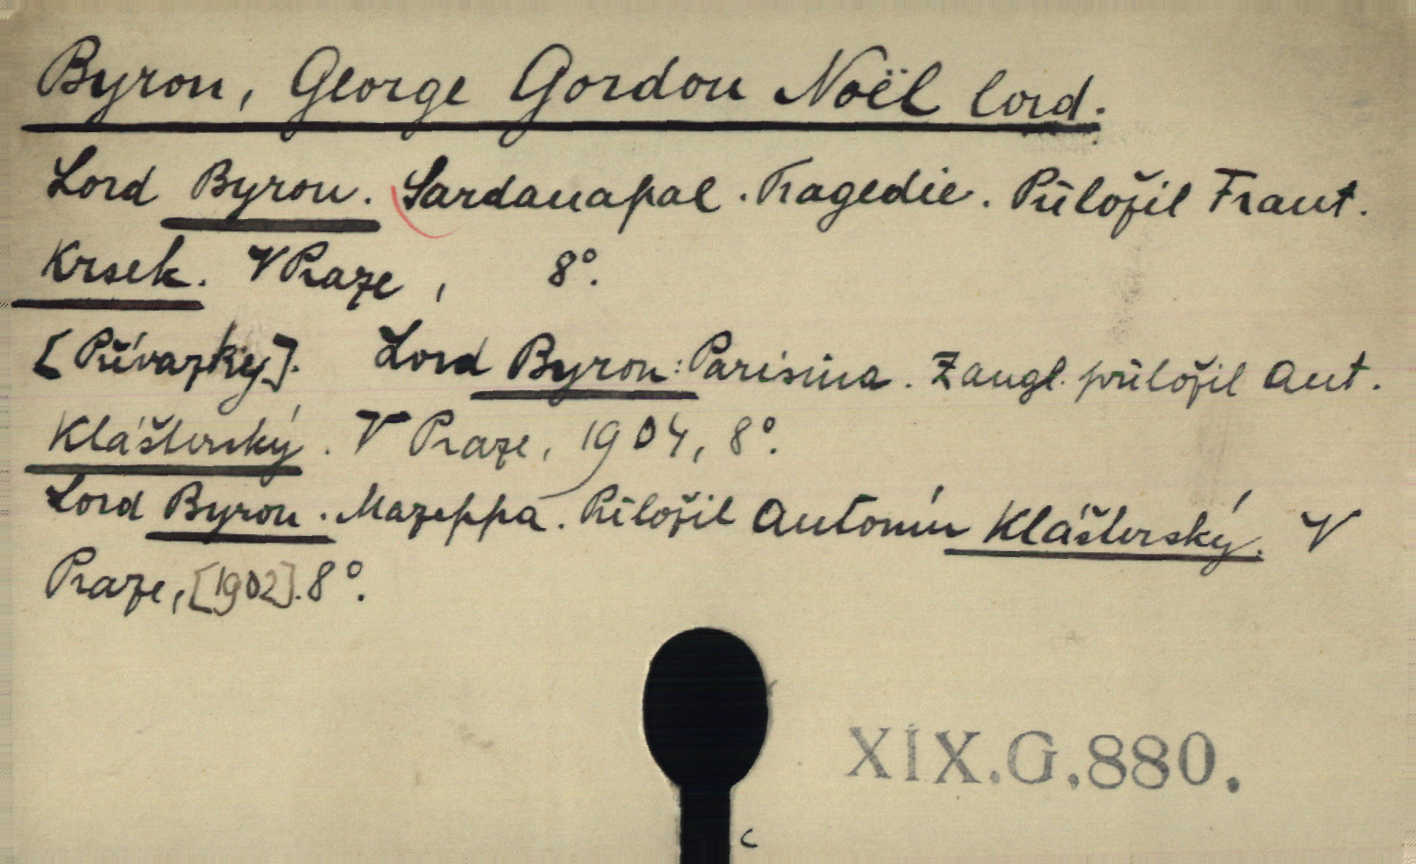 Byron, George Gordon Noël lord.
Lord Byron. Sardanapal. Tragedie. Přeložil Frant.
Krsek. V Praze, 8°.
[Přívazky]. Lord Byron: Parisina. Z angl. přeložil Ant.
Klášterský. V Praze, 1904, 8°.
Lord Byron. Mazeppa. Přeložil Antonín Klášterský. V
Praze, [1902]. 8°.
XIX.G.880.
c